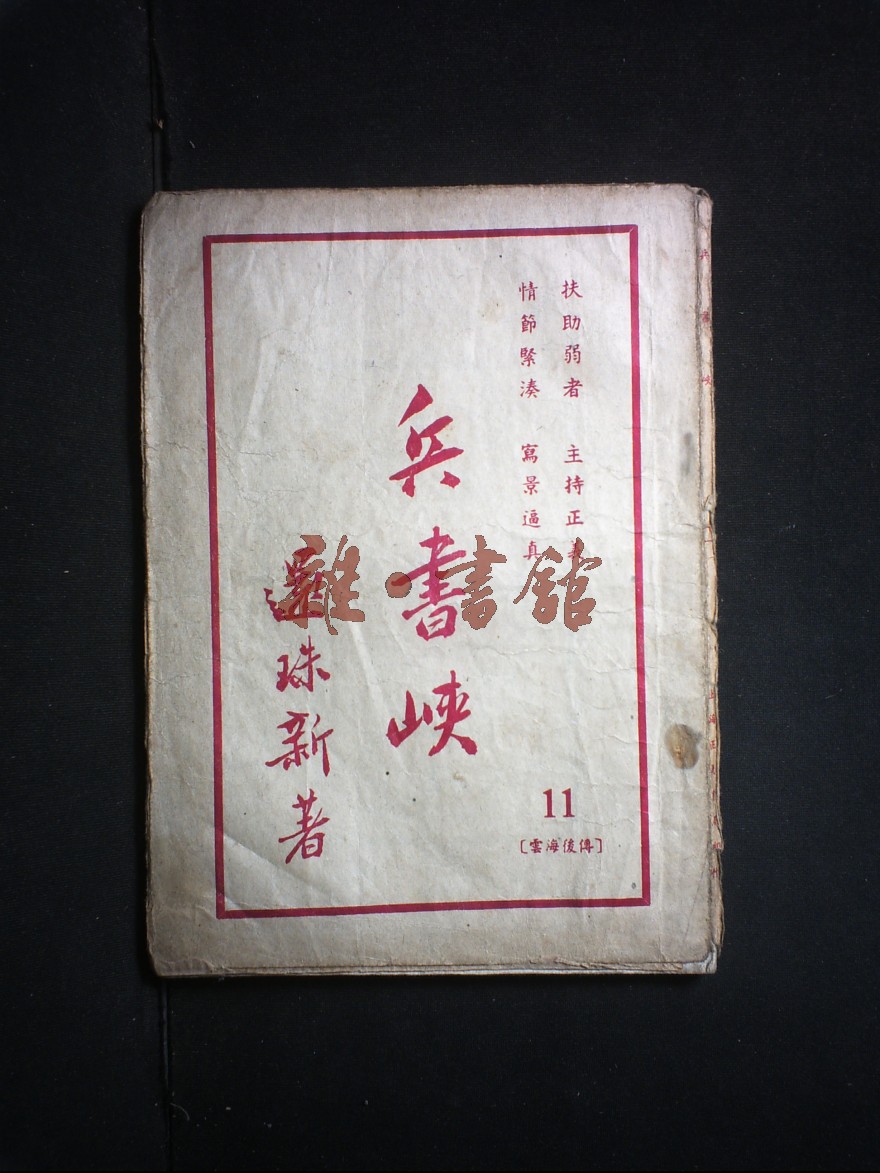 扶助弱者　主持正義
情節緊湊　寫景逼真
兵書峽
還珠新著
11
〔雲海後傳〕
雜·書館
兵書峽